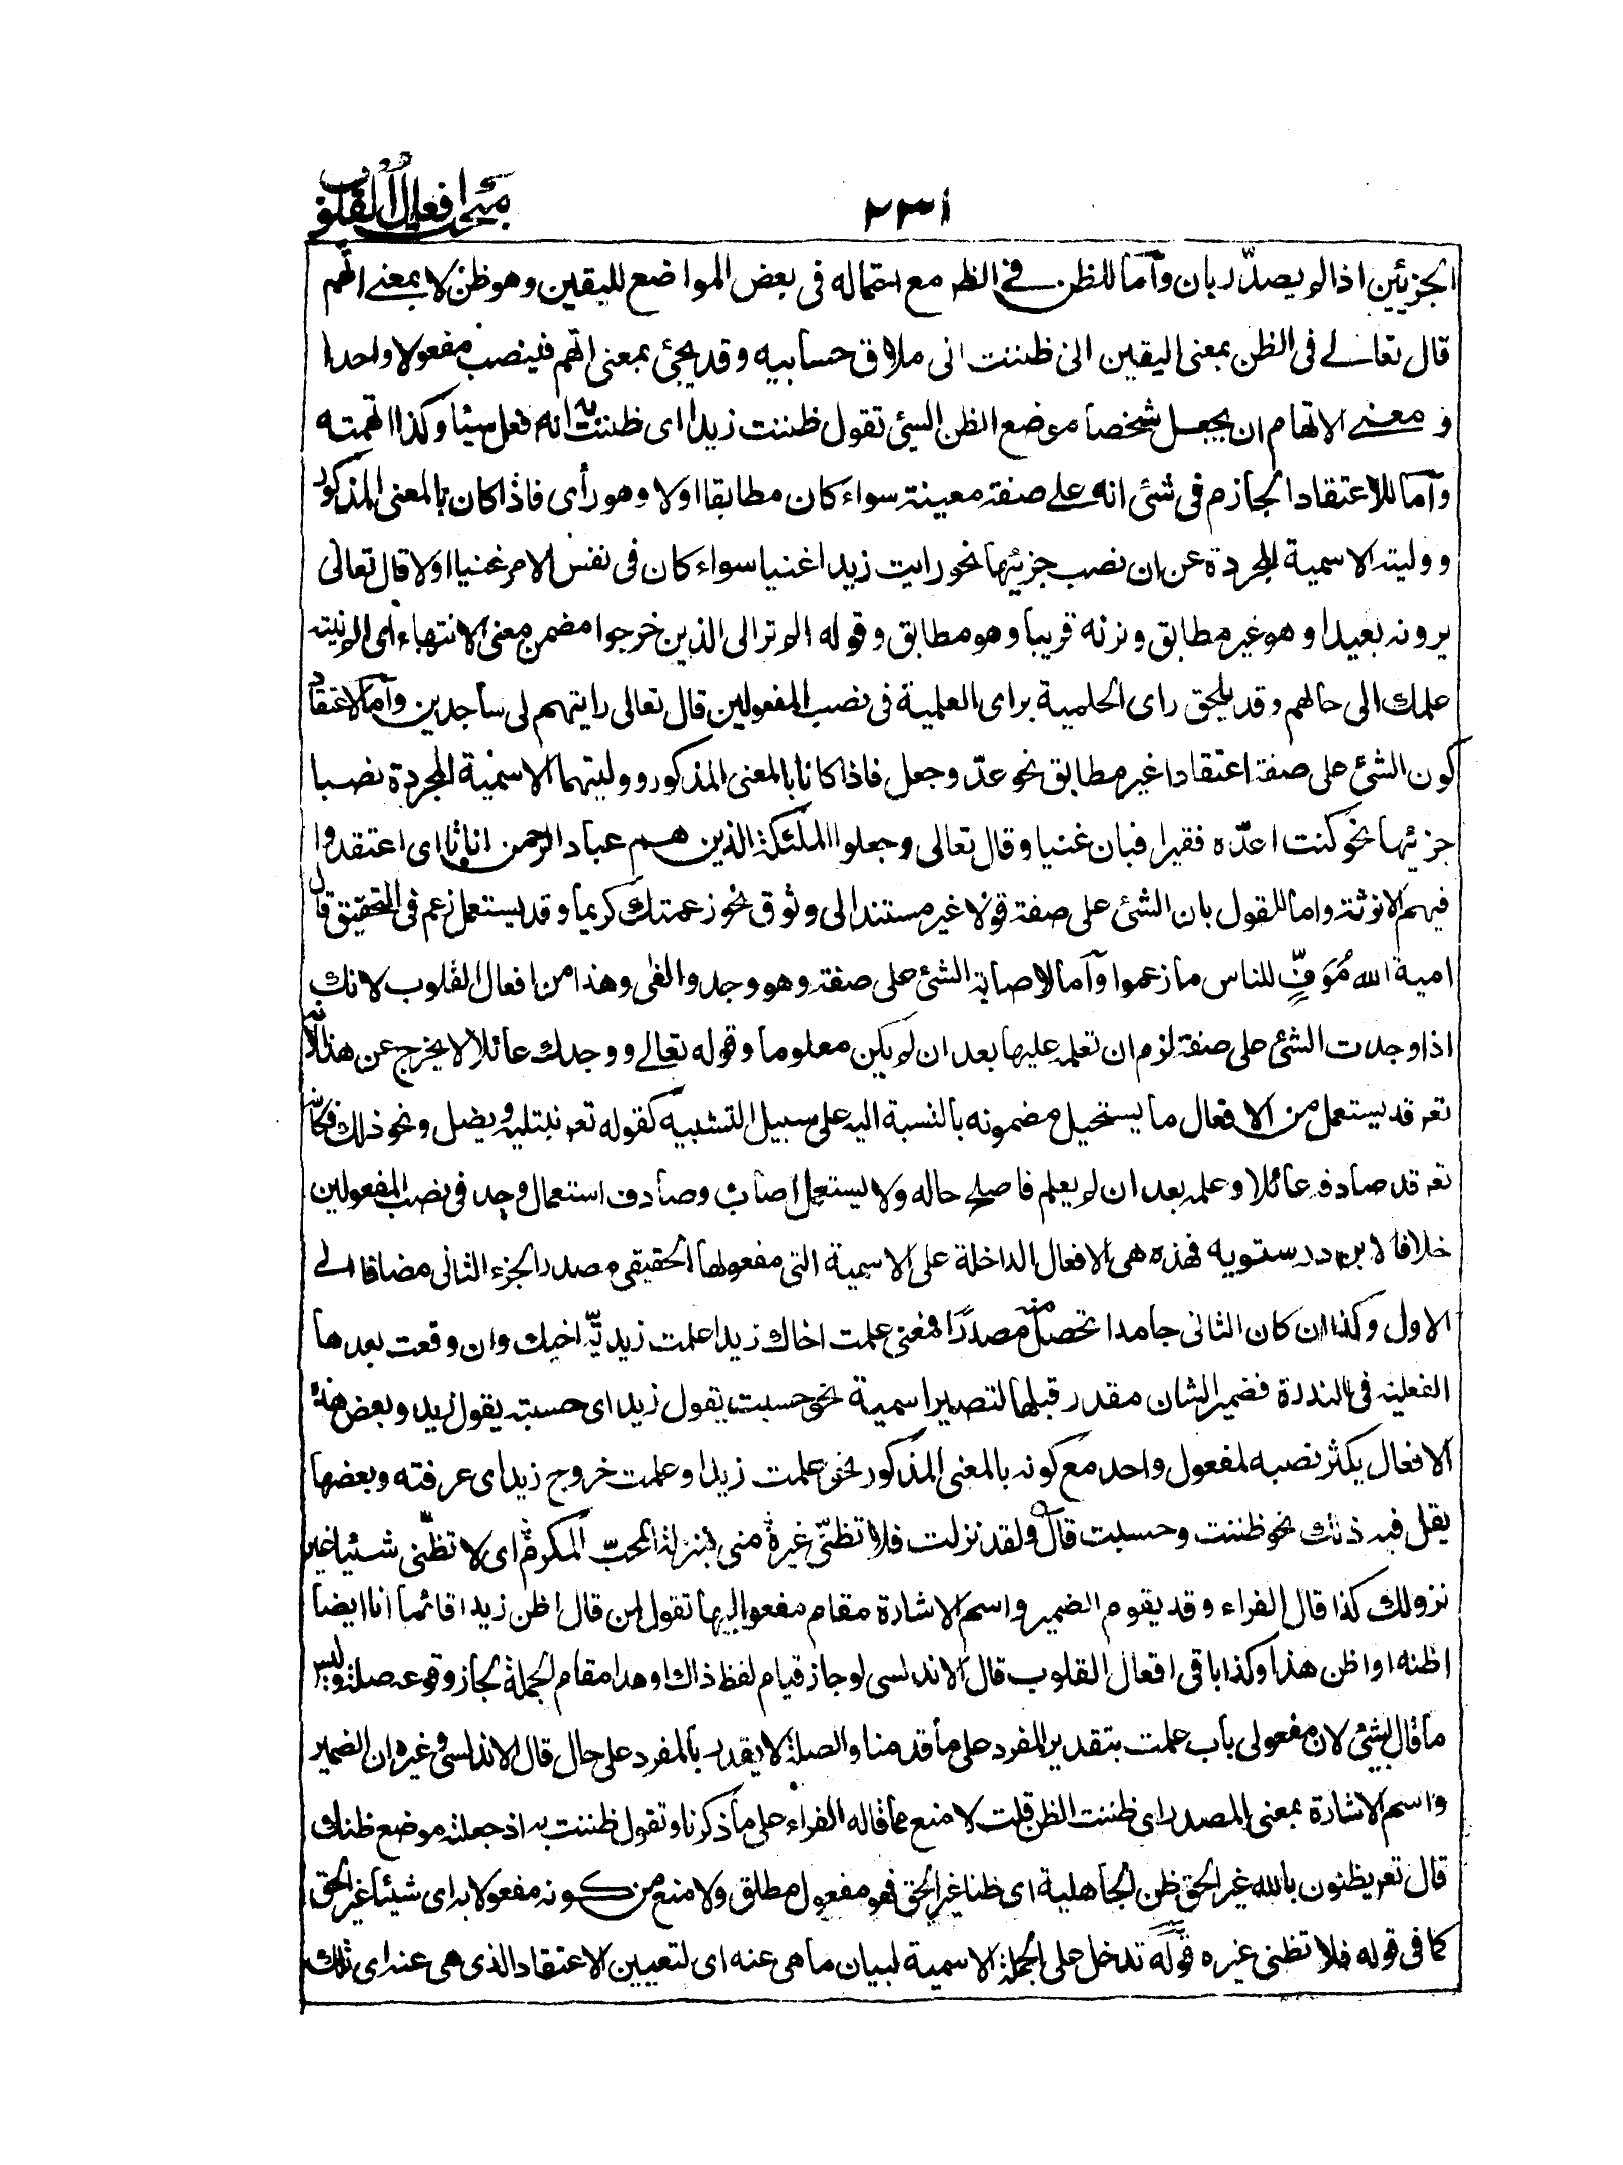 مبحث افعال القلوب
٢٣١
الجزئين اذا لم يصدّر بان وآما للظن فى الظن مع احتماله فى بعض المواضع لليقين وهو ظن لا بمعنى اتهم
قال تعالى فى الظن بمعنى اليقين انى ظننت انى ملاق حسابيه وقد يجئ بمعنى اتهم فينصب مفعولا واحدا
و معنى الاتهام ان يجعل شخصا موضع الظن السيئ تقول ظننت زيدا اى ظننت به انه فعل سيئا وكذا اتهمته
وآما للاعتقاد الجازم فى شئ انه على صفة معينة سواء كان مطابقا اولا وهو رأى فاذا كان بالمعنى المذكور
ووليته الاسمية المجردة عن ان نصب جزئيها نحو رايت زيدا غنيا سواء كان فى نفس الامر غنيا اولا قال تعالى
يرونه بعيدا وهو غير مطابق ونرٰىه قريبا وهو مطابق وقوله الم تر الى الذين خرجوا مضمن معنى الانتهاء اى الم ينته
علمك الى حالهم وقد يلحق راى الحلمية براى العلمية فى نصب المفعولين قال تعالى رايتهم لى ساجدين وآما لاعتقاد
كون الشئ على صفة اعتقادا غير مطابق نحو عدّ وجعل فاذا كانا بالمعنى المذكور ووليتهما الاسمية المجردة نصبا
جزئيها نحو كنت اعدّه فقيرا فبان غنيا وقال تعالى وجعلوا الملئكة الذين هم عباد الرحمن اناثا اى اعتقدوا
فيهم الانوثة واما للقول بان الشئ على صفة قولا غير مستند الى وثوق نحو زعمتك كريما وقد يستعمل زعم فى التحقيق قال
امية الله مُوَفٍّ للناس ما زعموا وآما لاصابة الشئ على صفة وهو وجد والفى وهذا من افعال القلوب لانك
اذا وجدت الشئ على صفة لزم ان تعلمه عليها بعد ان لم يكن معلوما وقوله تعالى ووجدك عائلا لا يخرج عن هذا لانه
تعم قد يستعمل من الافعال ما يستحيل مضمونه بالنسبة اليه على سبيل التشبيه كقوله تعم نبتليه ويضل ونحو ذلك فكانه
تعم قد صادفه عائلا وعلمه بعد ان لم يعلم فاصلح حاله ولا يستعمل اصاب وصادف استعمال وجد فى نصب المفعولين
خلافا لابن درستويه فهذه هى الافعال الداخلة على الاسمية التى مفعولها الحقيقى مصدر الجزء الثانى مضافا الى
الاول وكذا ان كان الثانى جامدا تحصل منه مصدرًا فمعنى علمت اخاك زيدا علمت زيديّة اخيك وان وقعت بعدها
الفعلية فى الندرة فضمير الشان مقدر قبلها لتصير اسمية نحو حسبت يقول زيد اى حسبته يقول زيد وبعض هذه
الافعال يكثر نصبه لمفعول واحد مع كونه بالمعنى المذكور نحو علمت زيدا وعلمت خروج زيد اى عرفته وبعضها
يقل فيه ذلك نحو ظننت وحسبت قال ولقد نزلت فلا تظنّى غيره منى بمنزلة المحبّ المكرم اى لا تظنّى شيئا غير
نزولك كذا قال الفراء وقد يقوم الضمير واسم الاشارة مقام مفعوليها تقول لمن قال اظن زيدا قائما انا ايضا
اظنه او اظن هذا وكذا باقى افعال القلوب قال الاندلسى لو جاز قيام لفظ ذاك وهذا مقام الجملة لجاز وقوعه صلة وليس
ما قال بشئ لان مفعولى باب علمت بتقدير المفرد على ما قدمنا والصلة لا يقدر بالمفرد على حال قال الاندلسى وغيره ان الضمير
واسم الاشارة بمعنى المصدر اى ظننت الظن قلت لا منع مما قاله الفراء على ما ذكرنا وتقول ظننت به اذ جعلته موضع ظنك
قال تعم يظنون بالله غير الحق ظن الجاهلية اى ظنا غير الحق فهو مفعول مطلق ولا منع من كونه مفعولا به اى شيئا غير الحق
كما فى قوله فلا تظنى غيره قوله تدخل على الجملة الاسمية لبيان ما هى عنه اى لتعيين الاعتقاد الذى هى عنه اى تلك